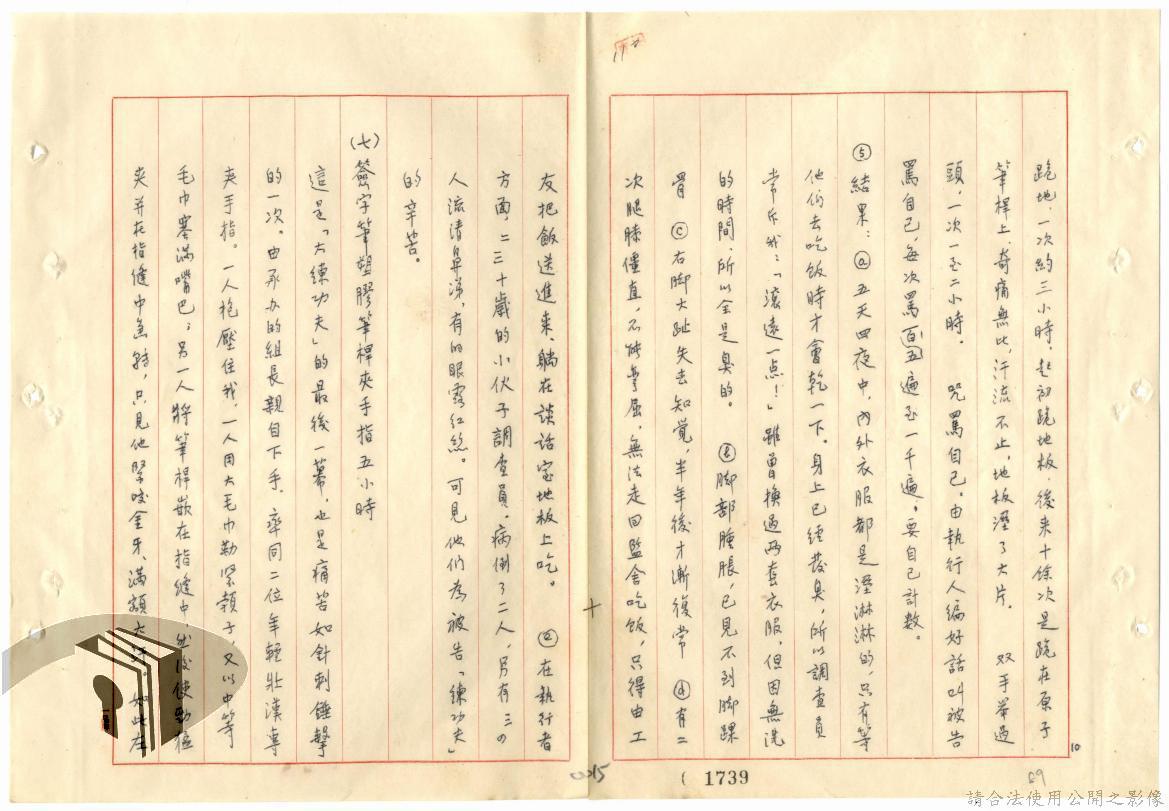 跪地,一次約三小時。起初跪地板,後來十餘次是跪在原子
筆桿上,奇痛無比,汗流不止,地板溼了大片。 双手举過
頭,一次一至二小時。 咒罵自己。由執行人編好話叫被告
罵自己,每次罵百五遍至一千遍。要自己計數。
⑤結果:ⓐ五天四夜中,內外衣服都是溼淋淋的,只有等
他們去吃飯時才會乾一下。身上已經發臭,所以調查員
常斥我:「滾遠一点!」雖曾換過两套衣服,但因無洗
的時間,所以全是臭的。 ⓑ脚部腫脹,已見不到脚踝
骨 ⓒ右脚大趾失去知覺,半年後才漸復常 ⓓ有二
次腿膝僵直,不能彎屈,無法走回監舍吃飯,只得由工
友把飯送進來,躺在談話室地板上吃。 ⓔ在執行者
方面,二三十歲的小伙子調查員。病倒了二人,另有三の
人流清鼻涕,有的眼露紅絲。可見他們為被告「練功夫」
的辛苦。
(七)簽字筆塑膠筆桿夾手指五小時
這是「大練功夫」的最後一幕,也是痛苦如針刺錘擊
的一次。由承办的組長親自下手,率同二位年輕壯漢專
夾手指。一人抱壓住我,一人用大毛巾勒緊頸子,又以中等
毛巾塞滿嘴巴;另一人將筆桿嵌在指縫中,然後使勁
夾并在指縫中,只見他緊咬金牙、滿額大汗。如此左
10
69
( 1739
0015
請合法使用公開之影像